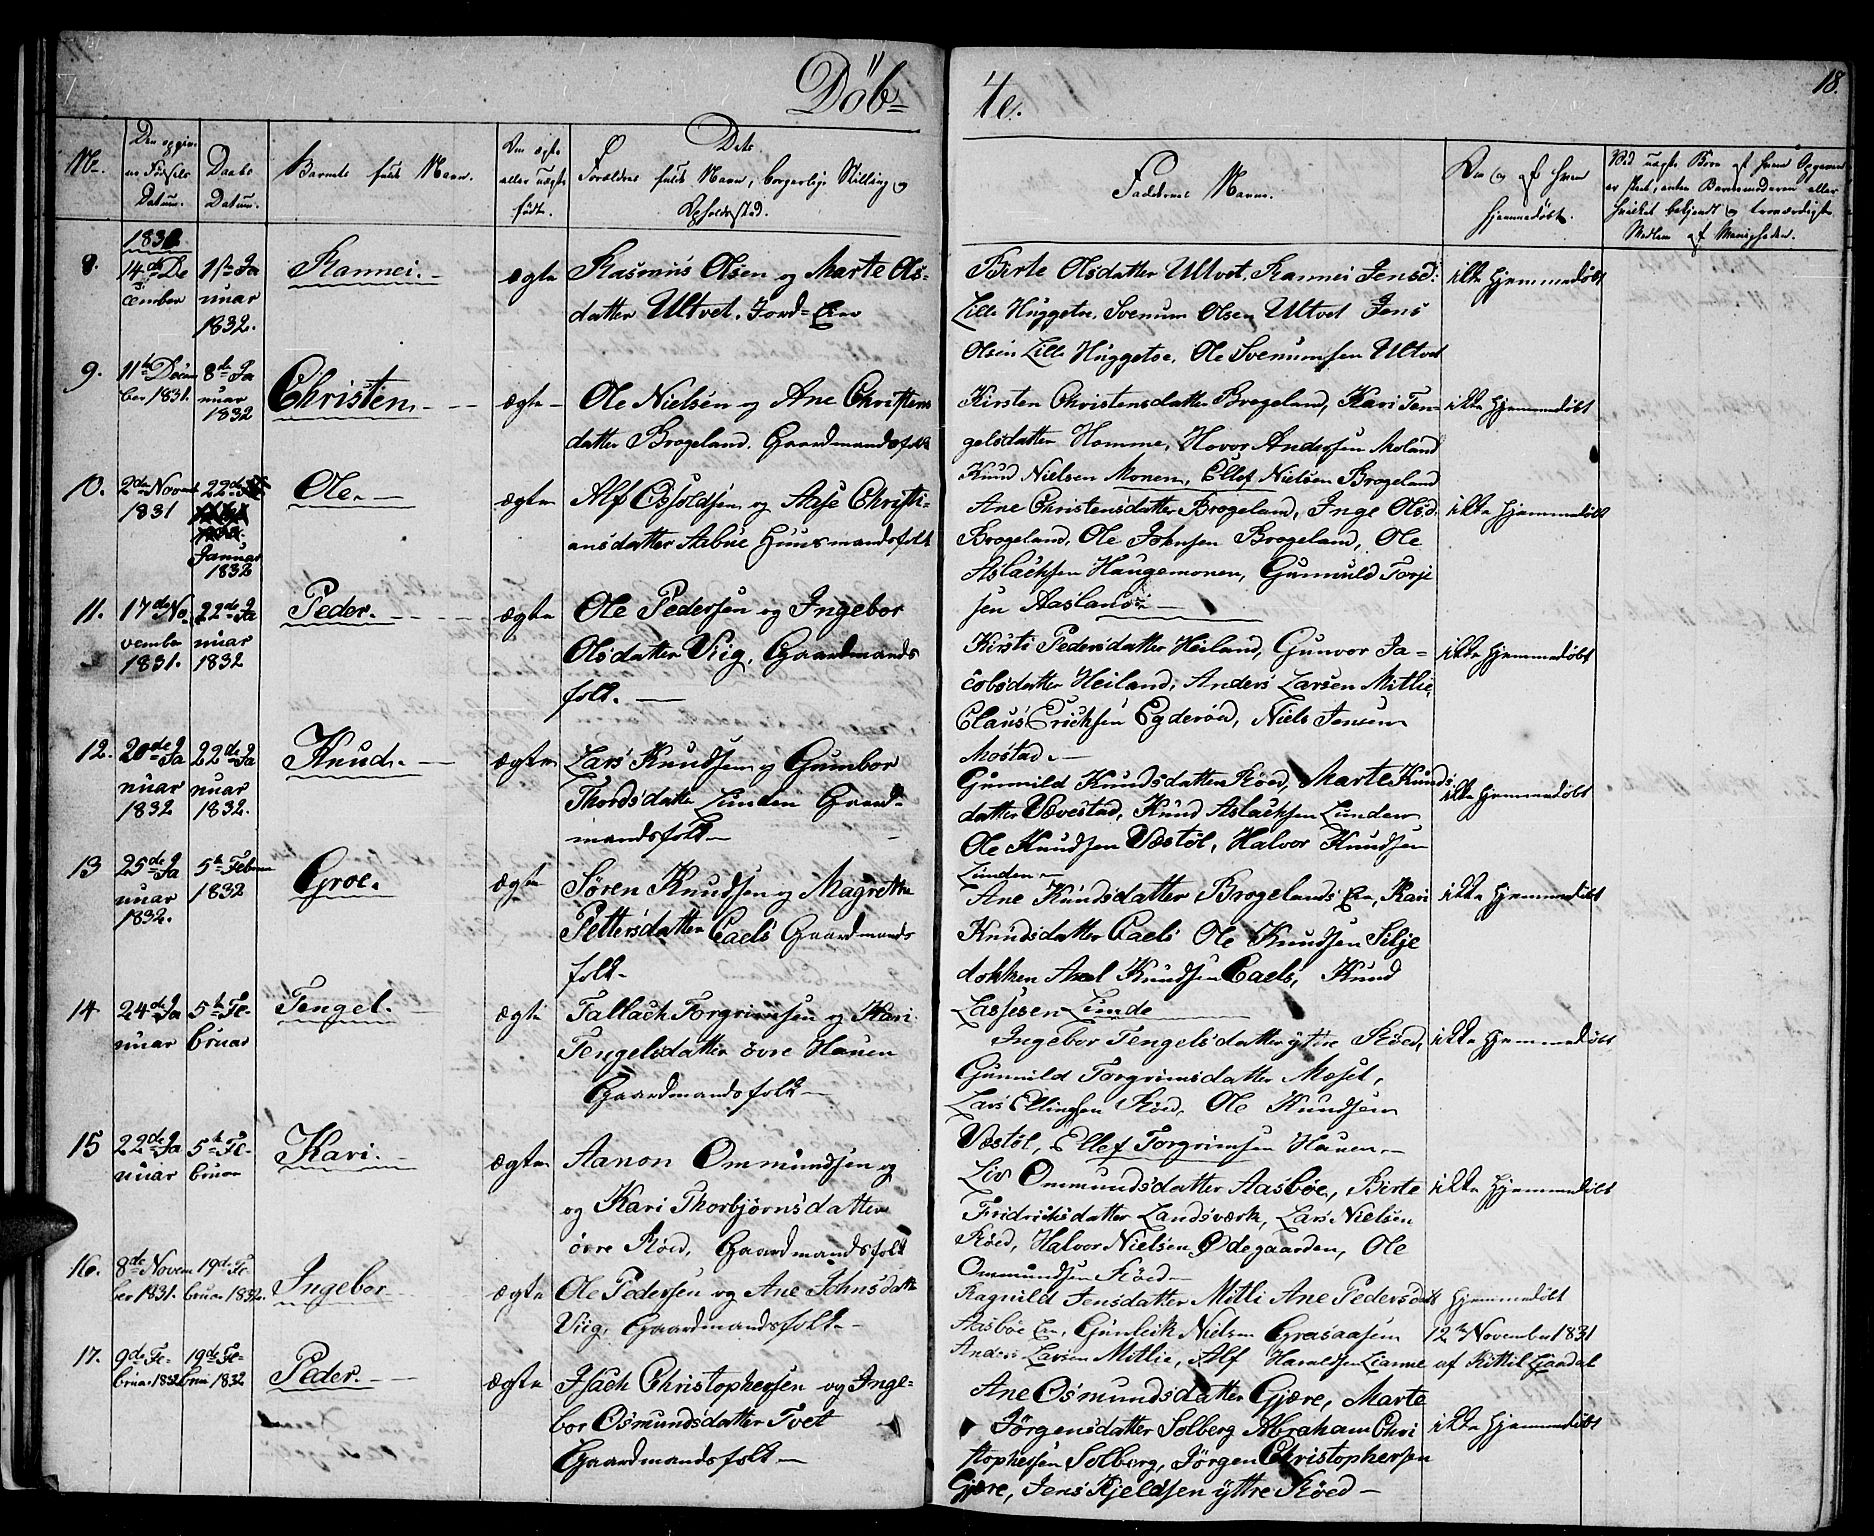 Döb=
4e.
18.
No.
Den opgiv-
ne Fødsels
Datum.
Daabs
Datum.
Barnets fulde Navn.
Om ægte
eller uægte
født.
Dets
Forældres fulde Navn, borgerlige Stilling og
Opholdssted.
Faddernes Navne.
Om og af hvem
hjemmedøbt.
Ved uægte Børn af hvem Opgaven
er skeet, enten Barnemoderen eller
hvilket bekjendt og troværdigt
Medlem af Menigheden.
8.
1832
14de De
cember
1ste Ja
nuar
1832.
Rannei.
ægte
Rasmus Olsen og Marte Ols-
datter Ultvet. Jord=Eer
Birte Olsdatter Ultvet, Rannei Jensd:
Lille Huggetoe, Svenum Olsen Ultvet Jens
Olsen Lille Huggetoe, Ole Svenumsen Ultvet
ikke hjemmedøbt
9.
11te Decem
ber 1831.
8de Ja
nuar
1832
Christen.
ægte
Ole Nielsen og Ane Christens
datter Brogeland. Gaardmandsfolk
Kirsten Christensdatter Brogeland, Kari Ten-
gelsdatter Homme, Hovor Andersen Moland
Knud Nielsen Monen, Ellef Nielsen Brogeland
ikke hjemmedøbt
10.
2den Novemb
1831
22de
Januar
1832
Ole.
ægte
Alf Osfoldsen og Aase Christi-
ansdatter Aabue Huusmandsfolk
Ane Christensdatter Brogeland, Inge Olsd.
Brogeland, Ole Johnsen Brogeland, Ole
Aslachsen Haugemonen, Gunnuld Torje
sen Aasland
ikke hjemmedøbt
11.
17de No
vember
1831.
22de Ja
nuar
1832
Peder.
ægte
Ole Pedersen og Ingebor
Olsdatter Viig, Gaardmands
folk.
Kirsti Pedersdatter Heiland, Gunvor Ja-
cobsdatter Heiland, Anders Larsen Mitlie,
Claus Erichsen Egderöed, Niels Jensen
Mostad.
ikke hjemmedøbt
12.
20de Ja
nuar
1832
22de Ja
nuar
1832.
Knud.
ægte
Lars Knudsen og Gunbor
Thordsdatter Lunden Gaard-
mandsfolk
Gunnild Knudsdatter Röed, Marte Knuds
datter Vævestad, Knud Aslachsen Lunden
Ole Knudsen Væstöl, Halvor Knudsen
Lunden
ikke hjemmedøbt
13
25de Ja
nuar
1832.
5te Februar
1832
Groe.
ægte
Søren Knudsen og Magrethe
Pettersdatter Caels Gaardmands
folk
Ane Knudsdatter Brogelands Eie, Kari
Knudsdatter Caels Ole Knudsen Silje
dokken Axel Knudsen Caels, Knud
Lassesen Lunde
ikke hjemmedøbt
14
24de Ja
nuar
5te Fe-
bruar
Tengel.
ægte
Tallach Torgrimsen og Kari
Tengelsdatter övre Hauen
Gaardmandsfolk
Ingebor Tengelsdatter ytre Röed,
Gunnild Torgrimsdatter Mosel,
Lars Ellingsen Röed, Ole Knudsen
Væstöl, Ellef Torgrimsen Hauen
ikke hjemmedøbt
15
22de Ja
nuar
5te Fe-
bruar
Kari.
ægte
Aanon Ommundsen og
og Kari Thorbjörnsdatter
övre Röed, Gaardmandsfolk
Liv Ommundsdatter Aasböe, Birte
Fridrichsdatter Landsværk, Lars Nielsen
Röed, Halvor Nielsen Ödegaarden, Ole
Ommundsen Röed
ikke hjemmedøbt
16.
8de Novem
ber 1831.
19de Fe-
bruar 1832.
Ingebor
ægte
Ole Pedersen og Ane Johnsdatter
Viig, Gaardmandsfolk
Ragnild Jensdatter Mitli Ane Pedersdatt
Aasböe Eie, Gunleik Nielsen Grasaasen
Anders Larsen Mitlie, Alf Haraldsen Lianne
Hjemmedøbt
12te November 1831
af Kittil Liandal
17.
9de Fe-
bruar 1832
19de Fe-
bruar 1832
Peder.
ægte
Isach Christophersen og Inge-
bor Osmundsdatter Tvet
Gaardmandsfolk
Ane Osmundsdatter Gjære, Marte
Jörgensdatter Solberg Abraham Chri
stophersen Solberg, Jörgen Christophersen
Gjære, Jens Kjeldsen yttre Röed
ikke hjemmedøbt